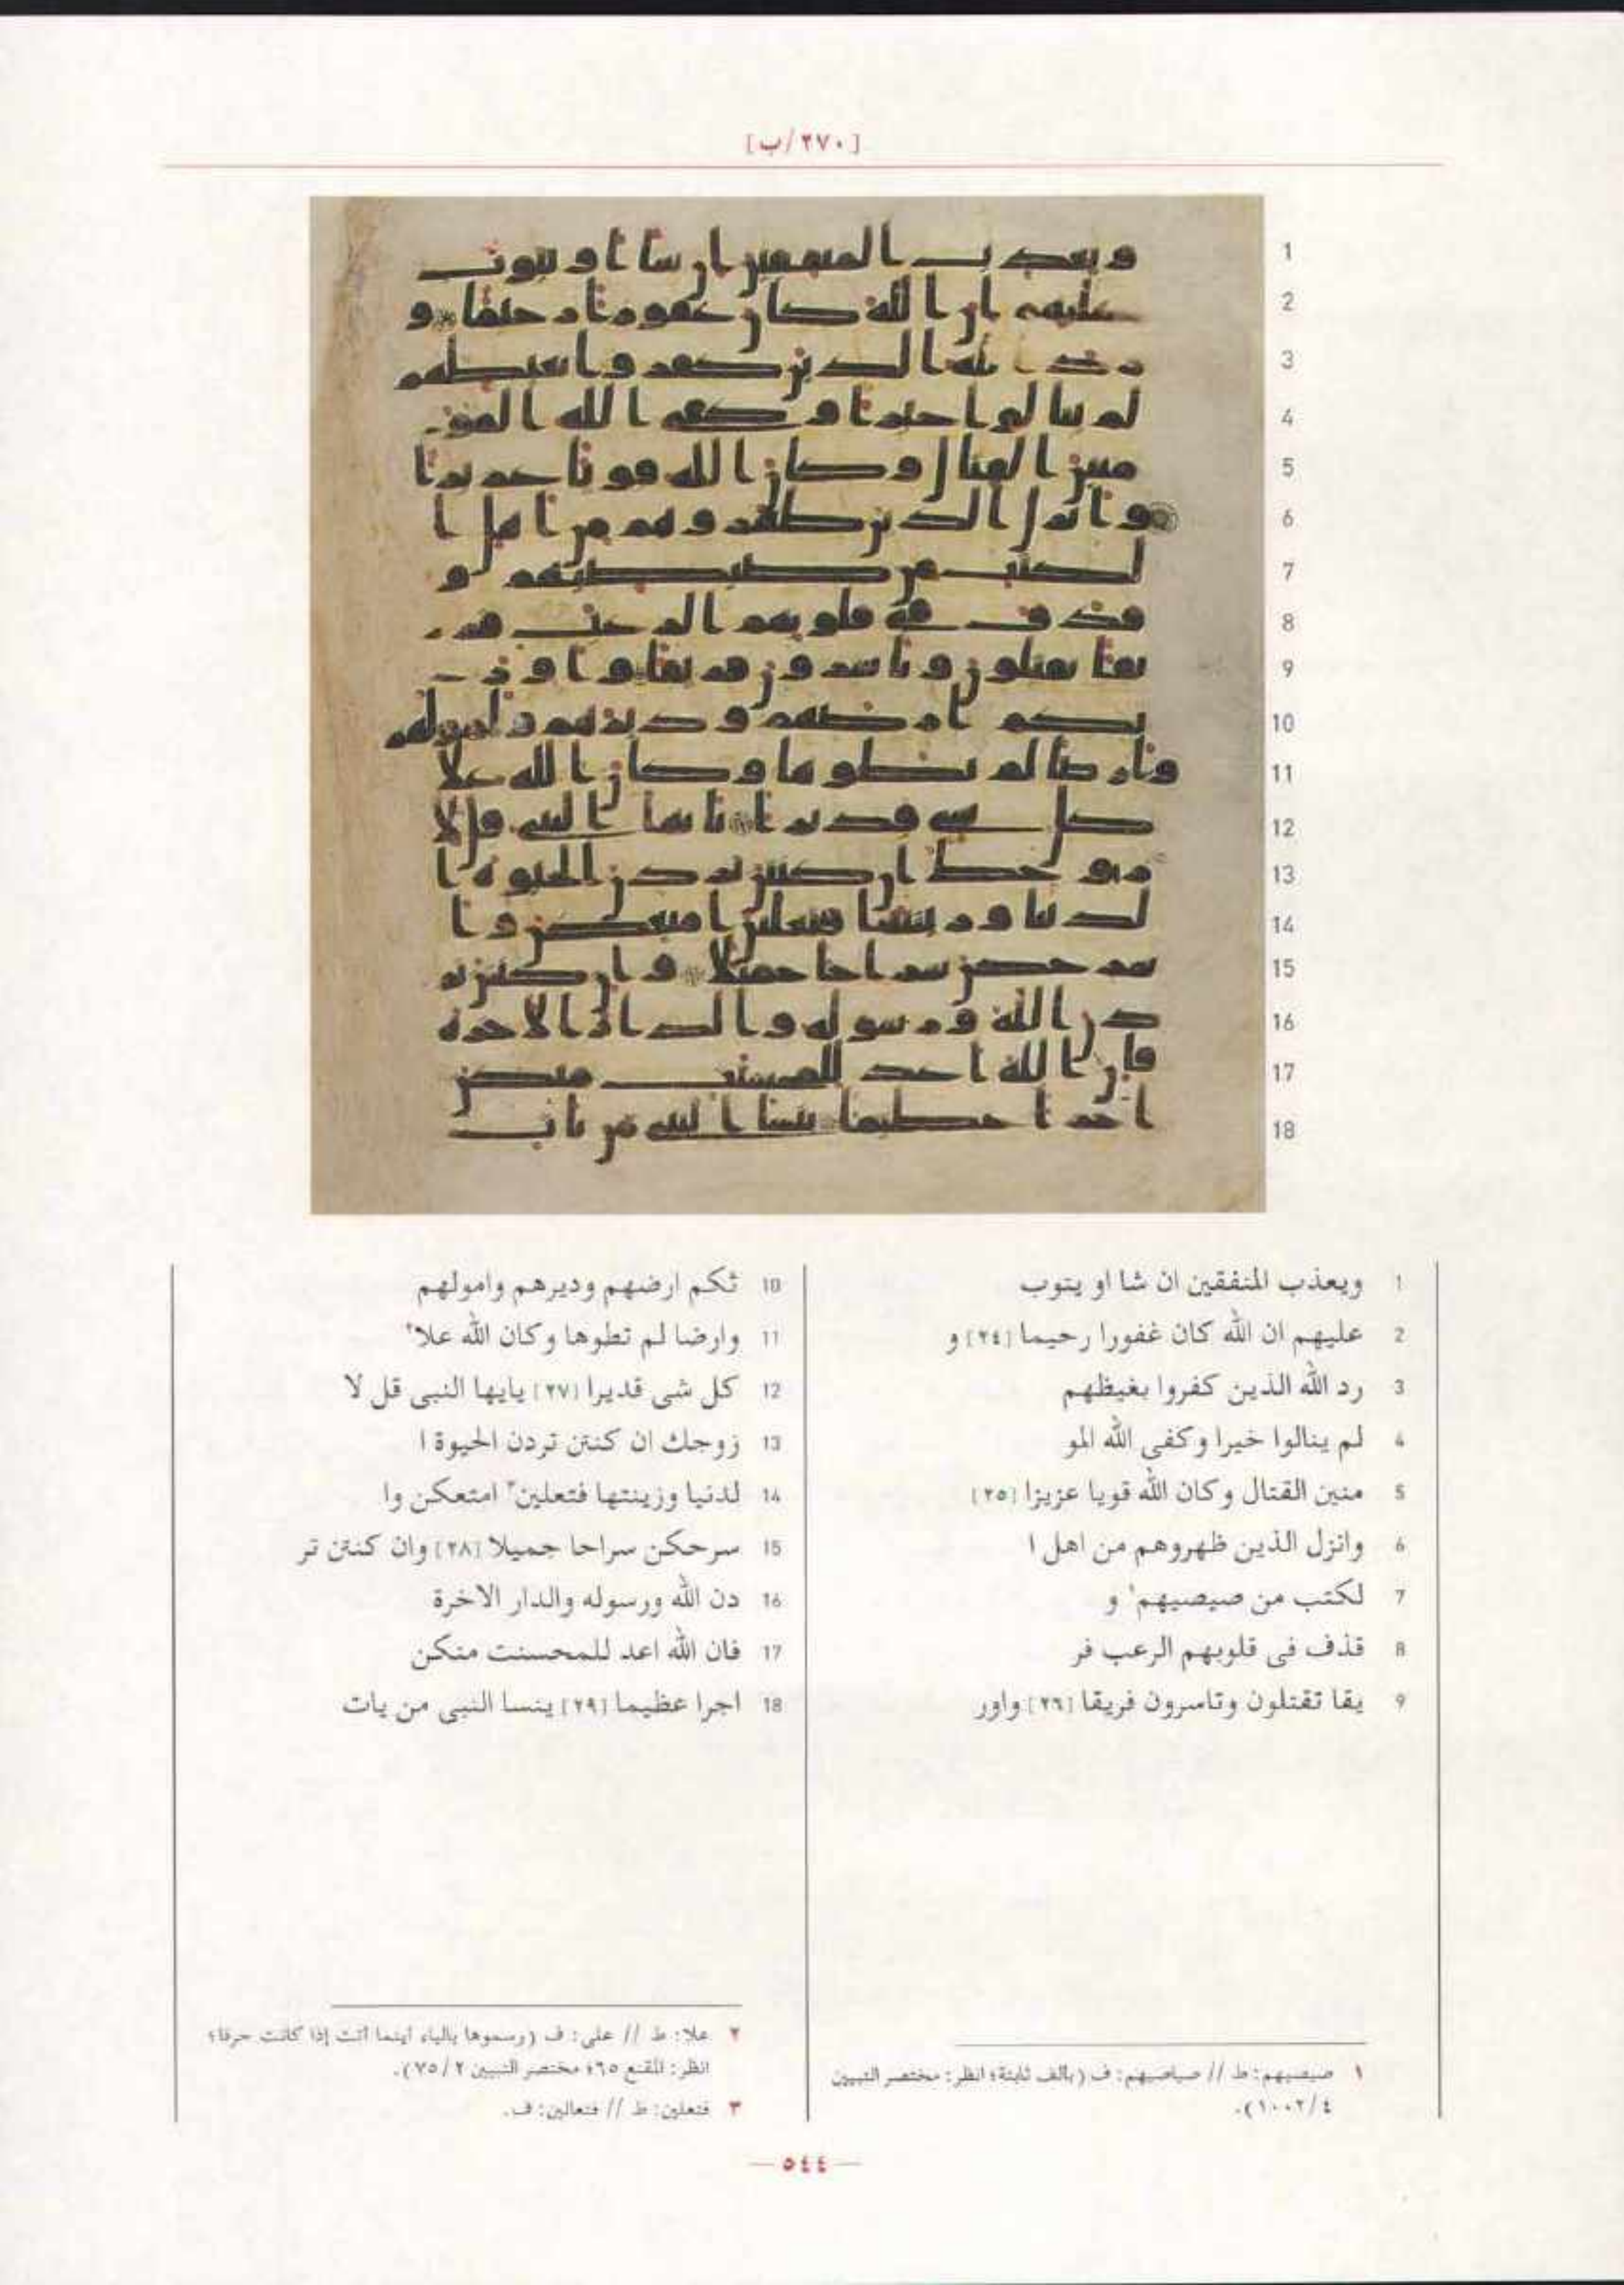 [٢٧٠/ب]
1
2
3
4
5
6
7
8
9
10
11
12
13
14
15
16
17
18
1 ويعذب المنفقين ان شا او يتوب
2 عليهم ان الله كان غفورا رحيما [٢٤] و
3 رد الله الذين كفروا بغيظهم
4 لم ينالوا خيرا وكفى الله المو
5 منين القتال وكان الله قويا عزيزا [٢٥]
6 وانزل الذين ظهروهم من اهل ا
7 لكتب من صيصيهم١ و
8 قذف فى قلوبهم الرعب فر
9 يقا تقتلون وتاسرون فريقا [٢٦] واور
10 ثكم ارضهم وديرهم وامولهم
11 وارضا لم تطوها وكان الله علا٢
12 كل شى قديرا [٢٧] يايها النبى قل لا
13 زوجك ان كنتن تردن الحيوة ا
14 لدنيا وزينتها فتعلين٣ امتعكن وا
15 سرحكن سراحا جميلا [٢٨] وان كنتن تر
16 دن الله ورسوله والدار الاخرة
17 فان الله اعد للمحسنت منكن
18 اجرا عظيما [٢٩] ينسا النبى من يات
١ صيصيهم: ط // صياصيهم: ف (بالف ثابتة؛ انظر: مختصر التبيين
٤/١٠٠٢).
٢ علا: ط // على: ف (رسموها بالياء اينما اتت إذا كانت حرفا؛
انظر: المقنع ٦٥؛ مختصر التبيين ٢/٧٥).
٣ فتعلين: ط // فتعالين: ف.
— ٥٤٤ —